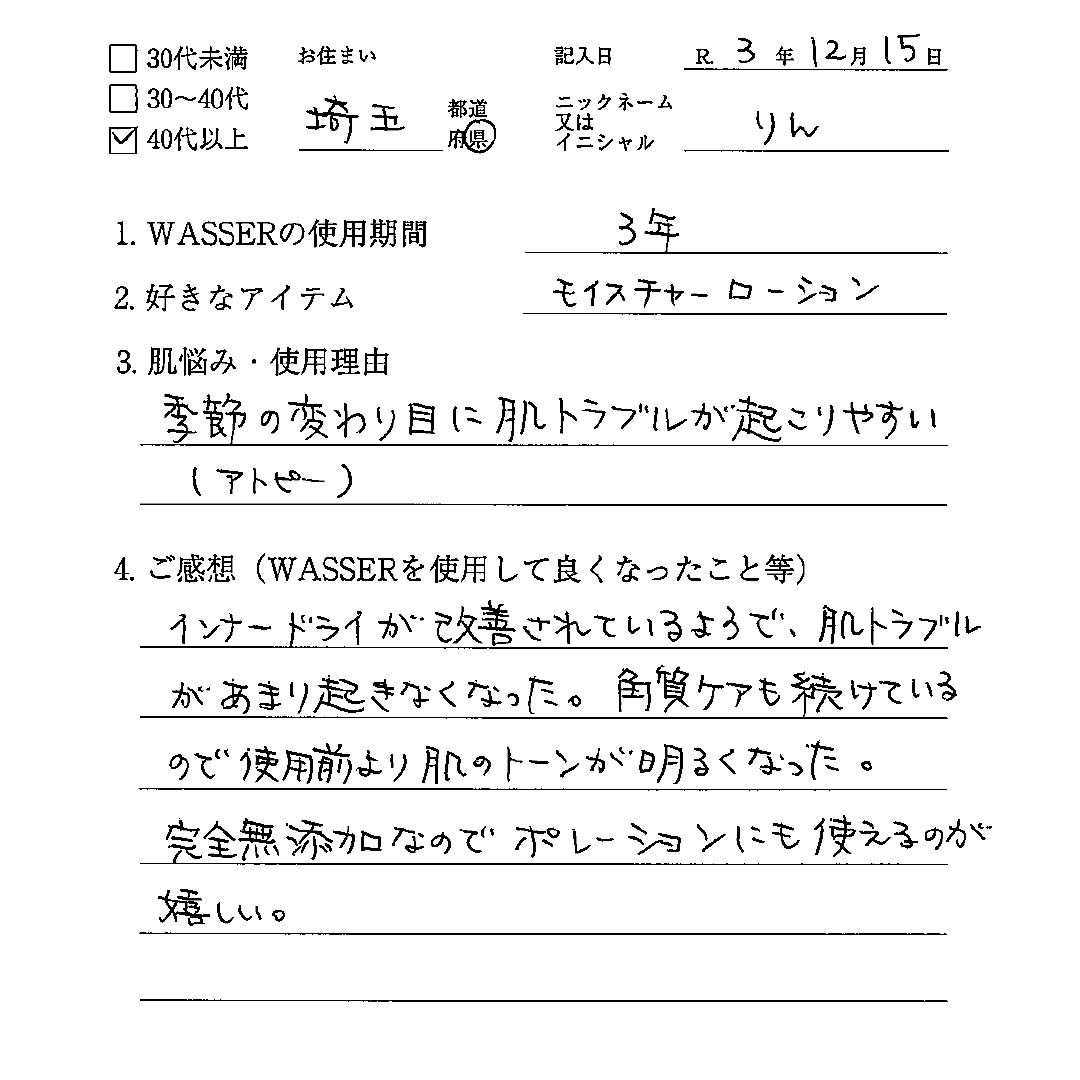 □ 30代未満 お住まい 記入日 R. 3 年 12 月 15 日
□ 30～40代 埼玉 都道府県 ニックネーム又はイニシャル りん
☑ 40代以上
1. WASSERの使用期間 3年
2. 好きなアイテム モイスチャーローション
3. 肌悩み・使用理由
季節の変わり目に肌トラブルが起こりやすい
(アトピー)
4. ご感想（WASSERを使用して良くなったこと等）
インナードライが改善されているようで、肌トラブル
があまり起きなくなった。角質ケアも続けている
ので使用前より肌のトーンが明るくなった。
完全無添加なのでポレーションにも使えるのが
嬉しい。